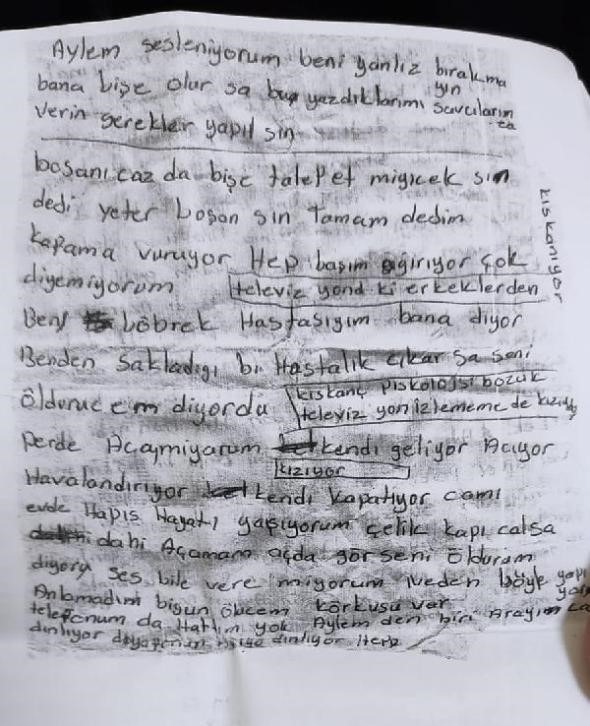 Aylem sesleniyorum beni yanlız bırakma
yın
bana bişe olur sa bu yazdıklarımı savcıların
za
verin gerekler yapıl sın
boşanıcaz da bişe talep et miyicek sin
dedi yeter boşan sin Tamam dedim
kafama vuruyor Hep başım ağırıyor çok
diyemiyorum televiz yond ki erkeklerden
kıskanıyor
Ben böbrek Hastasıyım bana diyor
Benden sakladığı bi Hastalık çıkar sa seni
öldürüc em diyordu kıskanç piskolojsi bozuk
televiz yon izlememe de kızıyor
perde Açamıyorum kendi geliyor Açıyor
kızıyor
Havalandırıyor kendi kapatıyor camı
evde Hapis Hayatı yaşıyorum çelik kapı calsa
dahi Açamam açda gör seni öldürüm
diyor ses bile vere miyorum Neden böyle yapı
Anlamadım bigun ölücem korkusu var
telefonum da Hattım yok Aylem den biri Arayınca
dinliyor dinliyor